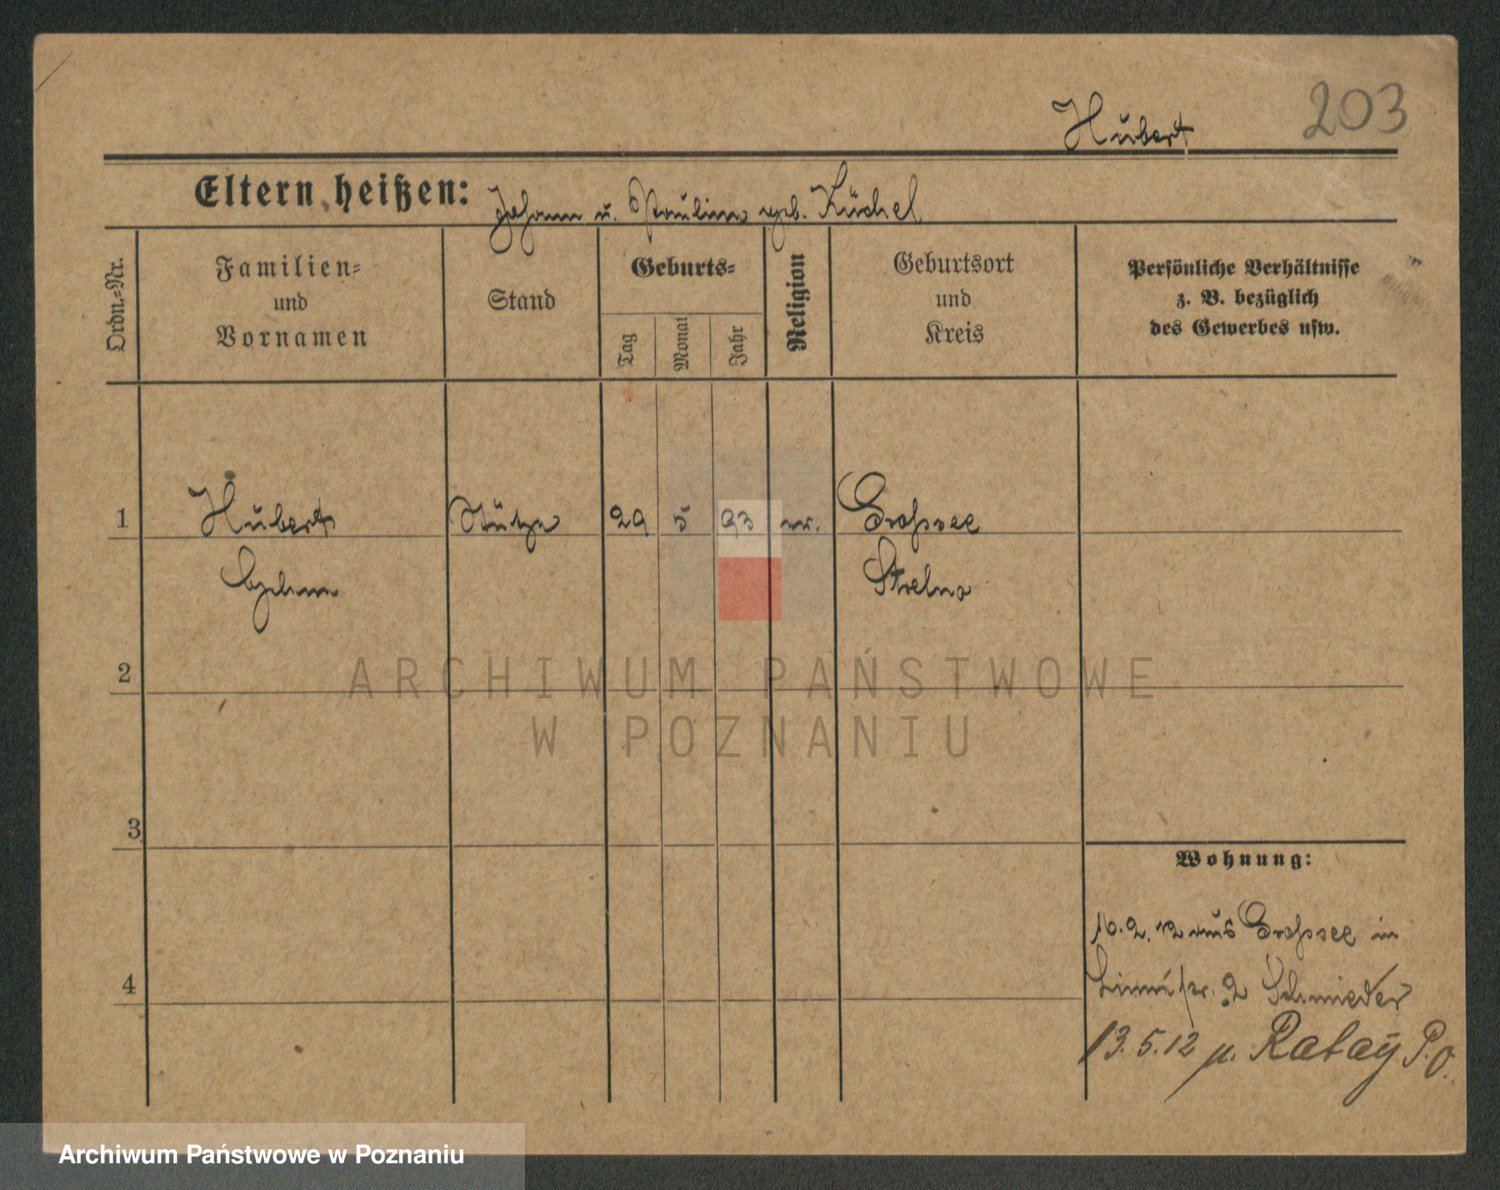 203
Hubert
Eltern heißen: Johann u. Paulina geb. Küchel
Ordn.-Nr.
Familien-
und
Vornamen
Stand
Geburts-
Tag
Monat
Jahr
Religion
Geburtsort
und
Kreis
Persönliche Verhältnisse
z. B. bezüglich
des Gewerbes usw.
1
Hubert Stütze 29 5 93 ev. Grossee
Strelno
2
ARCHIWUM PAŃSTWOWE
W POZNANIU
3
Wohnung:
16.2.12 aus Grossee in
4
2 Schmieder
13.5.12 n. Rabay P.O.
Archiwum Państwowe w Poznaniu